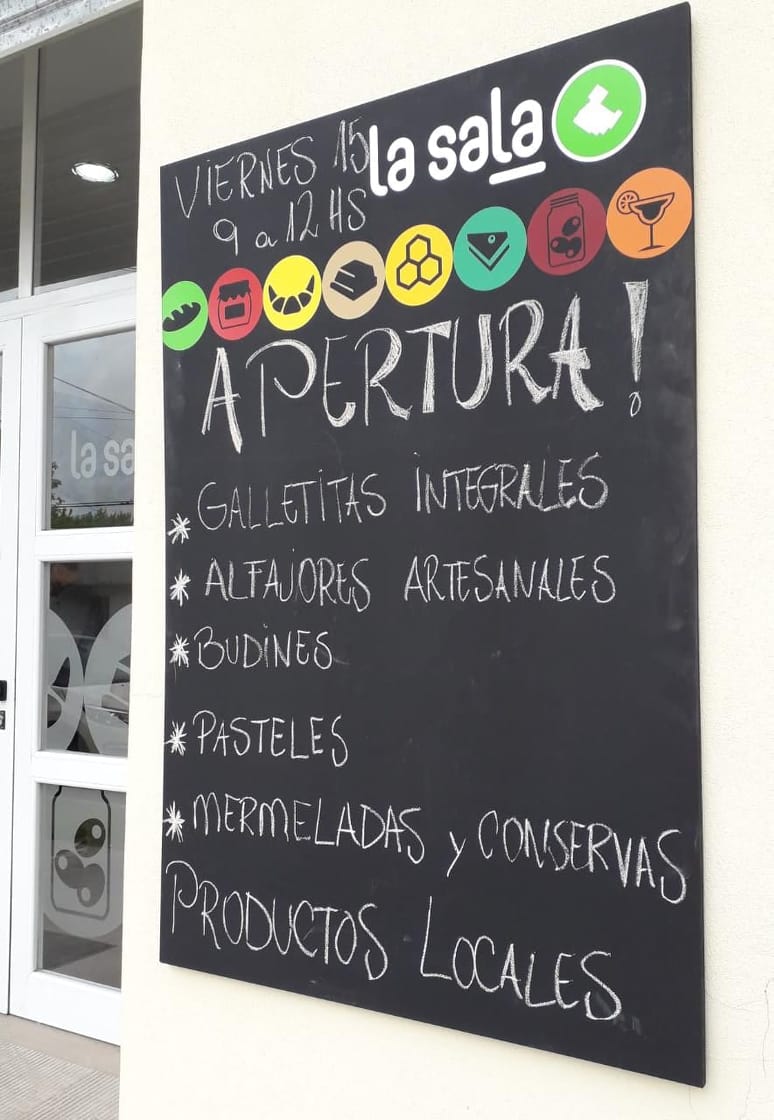 VIERNES 15
9 a 12 HS
la sala
APERTURA!
* GALLETITAS INTEGRALES
* ALFAJORES ARTESANALES
* BUDINES
* PASTELES
* MERMELADAS y CONSERVAS
PRODUCTOS LOCALES
la sa